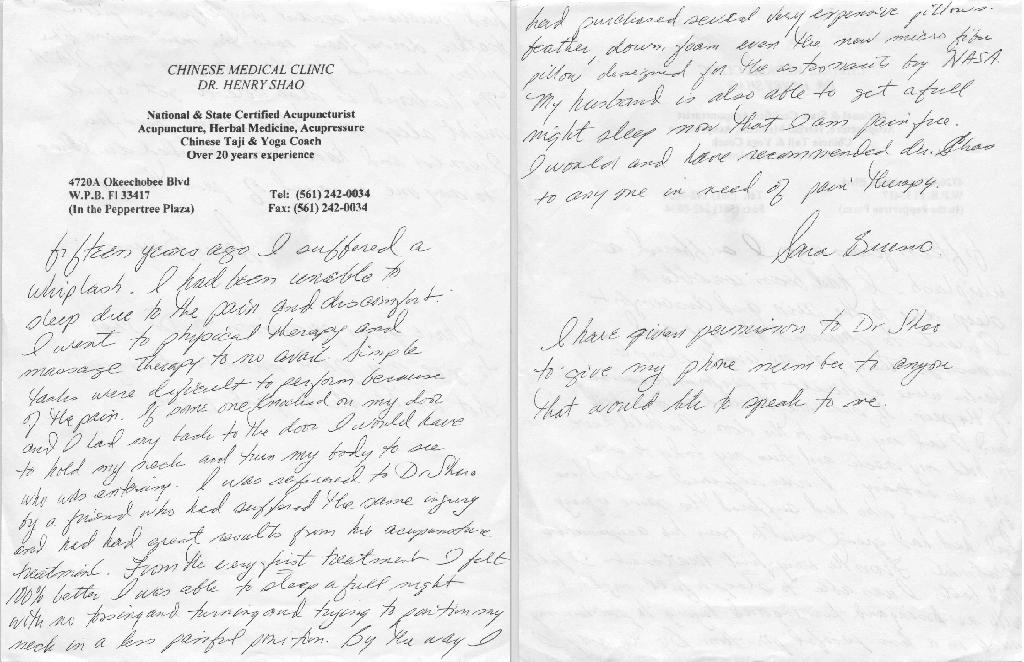 CHINESE MEDICAL CLINIC
DR. HENRY SHAO
National & State Certified Acupuncturist
Acupuncture, Herbal Medicine, Acupressure
Chinese Taji & Yoga Coach
Over 20 years experience
4720A Okeechobee Blvd
W.P.B. Fl 33417 Tel: (561) 242-0034
(In the Peppertree Plaza) Fax: (561) 242-0034
fifteen years ago I suffered a
whiplash. I had been unable to
sleep due to the pain and discomfort.
I went to physical therapy and
massage therapy to no avail. Simple
tasks were difficult to perform because
of the pain. If some one knocked on my door
and I had my back to the door I would have
to hold my neck and turn my body to see
who was entering. I was referred to Dr Shao
by a friend who had suffered the same injury
and had had great results from his acupuncture
treatment. From the very first treatment I felt
100% better I was able to sleep a full night
with no tossing and turning and trying to position my
neck in a less painful position. By the way I
had purchased several very expensive pillows.
feather, down, foam even the new micro fiber
pillow designed for the astronauts by NASA.
My husband is also able to get a full
night sleep now that I am pain free.
I would and have recommended dr. Shao
to any one in need of pain therapy.
Sara Bueno.
I have given permission to Dr Shao
to give my phone number to anyone
that would like to speak to me.